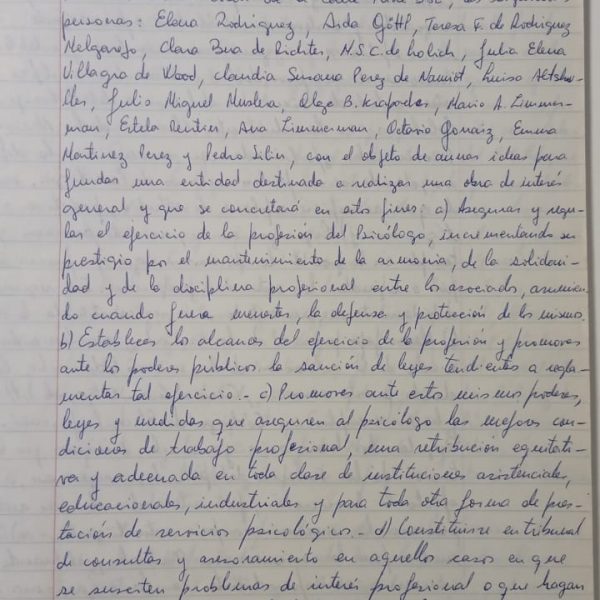 personas: Elena Rodriguez, Aida Göttl, Teresa F. de Rodriguez
Melgarejo, Clara Bua de Richter, N.S.C. de Kolich, Julia Elena
Villagra de Wood, Claudia Susana Perez de Namiot, Luisa Altshu-
ller, Julio Miguel Muslera, Olga B. Mario A. Zimmer-
man, Estela Ana Zimmerman, Octavio Emma
Martinez Perez y Pedro con el objeto de aunar ideas para
fundar una entidad destinada a realizar una obra de interés
general y que se concretará en estos fines: a) Asegurar y regu-
lar el ejercicio de la profesión del Psicólogo, incrementando su
prestigio por el mantenimiento de la armonía, de la solidari-
dad y de la disciplina profesional entre los asociados, asumien-
do cuando fuera menester, la defensa y protección de los mismos.
b) Establecer los alcances del ejercicio de la profesión y promover
ante los poderes públicos la sanción de leyes tendientes a regla-
mentar tal ejercicio.- c) Promover ante estos mismos poderes,
leyes y medidas que aseguren al psicólogo las mejores con-
diciones de trabajo profesional, una retribución equitati-
va y adecuada en toda clase de instituciones asistenciales,
educacionales, industriales y para toda otra forma de pres-
tación de servicios psicológicos.- d) Constituirse en tribunal
de consultas y asesoramiento en aquellos casos en que
se susciten problemas de interés profesional o que hagan